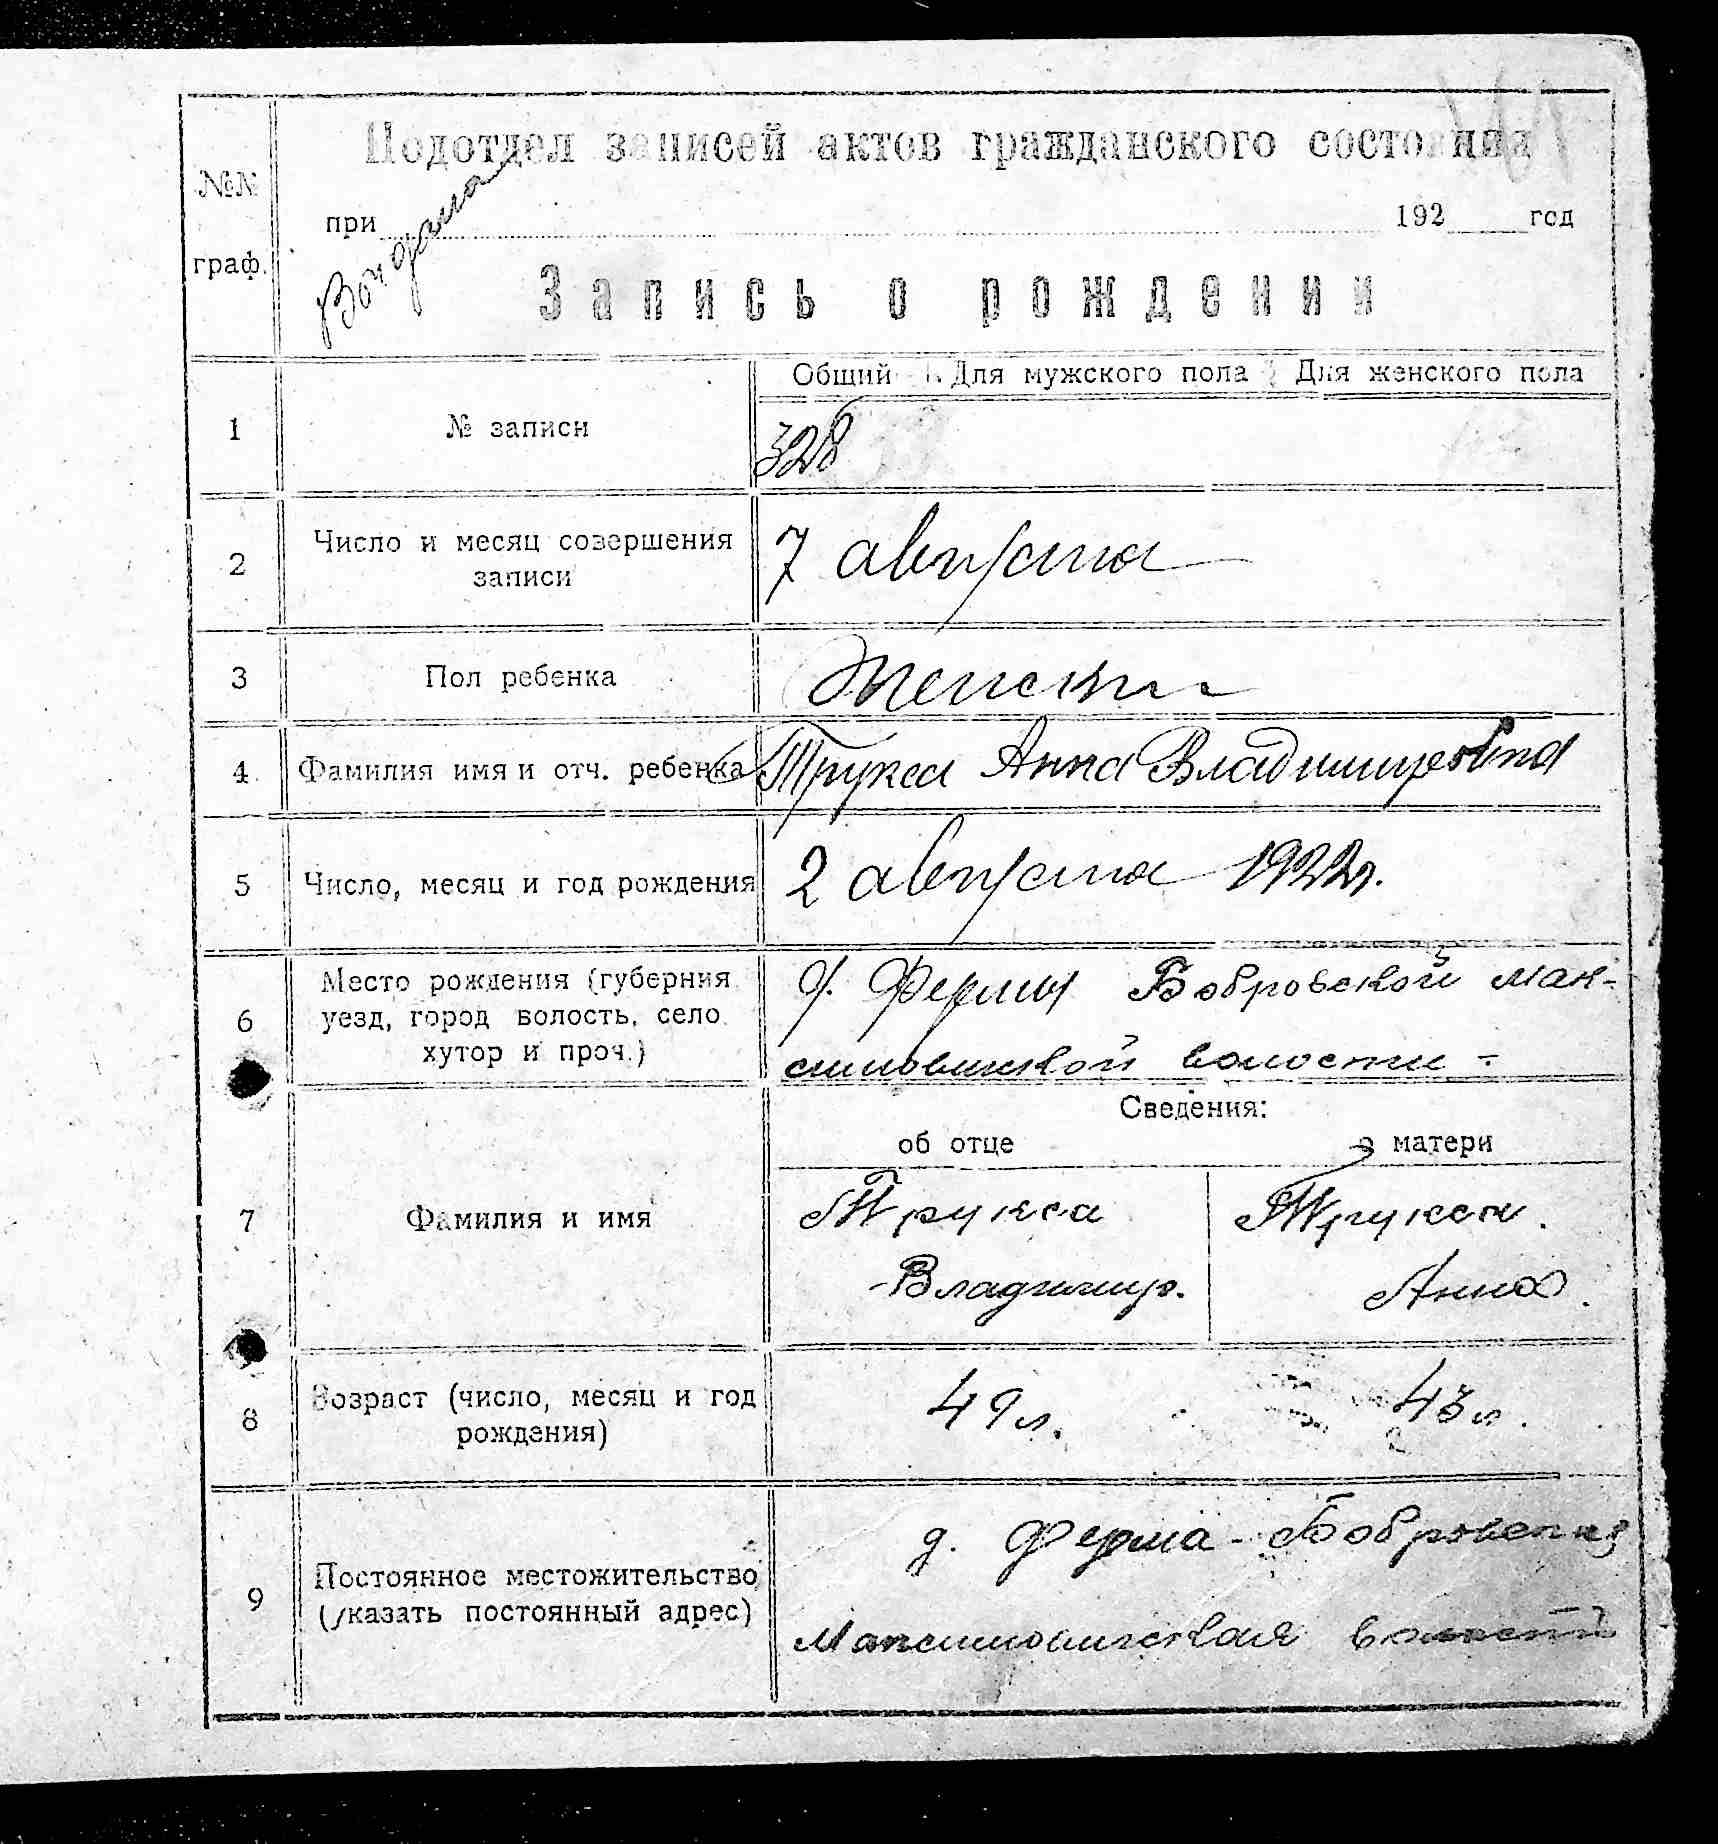 Подотдел записей актов гражданского состояния
№№
граф.
при 192 год
Запись о рождении
Общий Для мужского пола Для женского пола
1 № записи 328
2 Число и месяц совершения
записи
7 августа
3 Пол ребенка Женский
4 Фамилия имя и отч. ребенка Трукса Анна Владимировна
5 Число, месяц и год рождения 2 августа 1922 г.
6 Место рождения (губерния
уезд, город волость, село
хутор и проч.)
д. Фермы Бобровской Мак-
симовичской волости -
Сведения:
об отце о матери
7 Фамилия и имя Трукса Трукса.
Владимир. Анна.
8 Возраст (число, месяц и год
рождения)
49 л. 43 л.
9 Постоянное местожительство
(указать постоянный адрес)
д. Ферма-Бобровская
Максимовичская волость